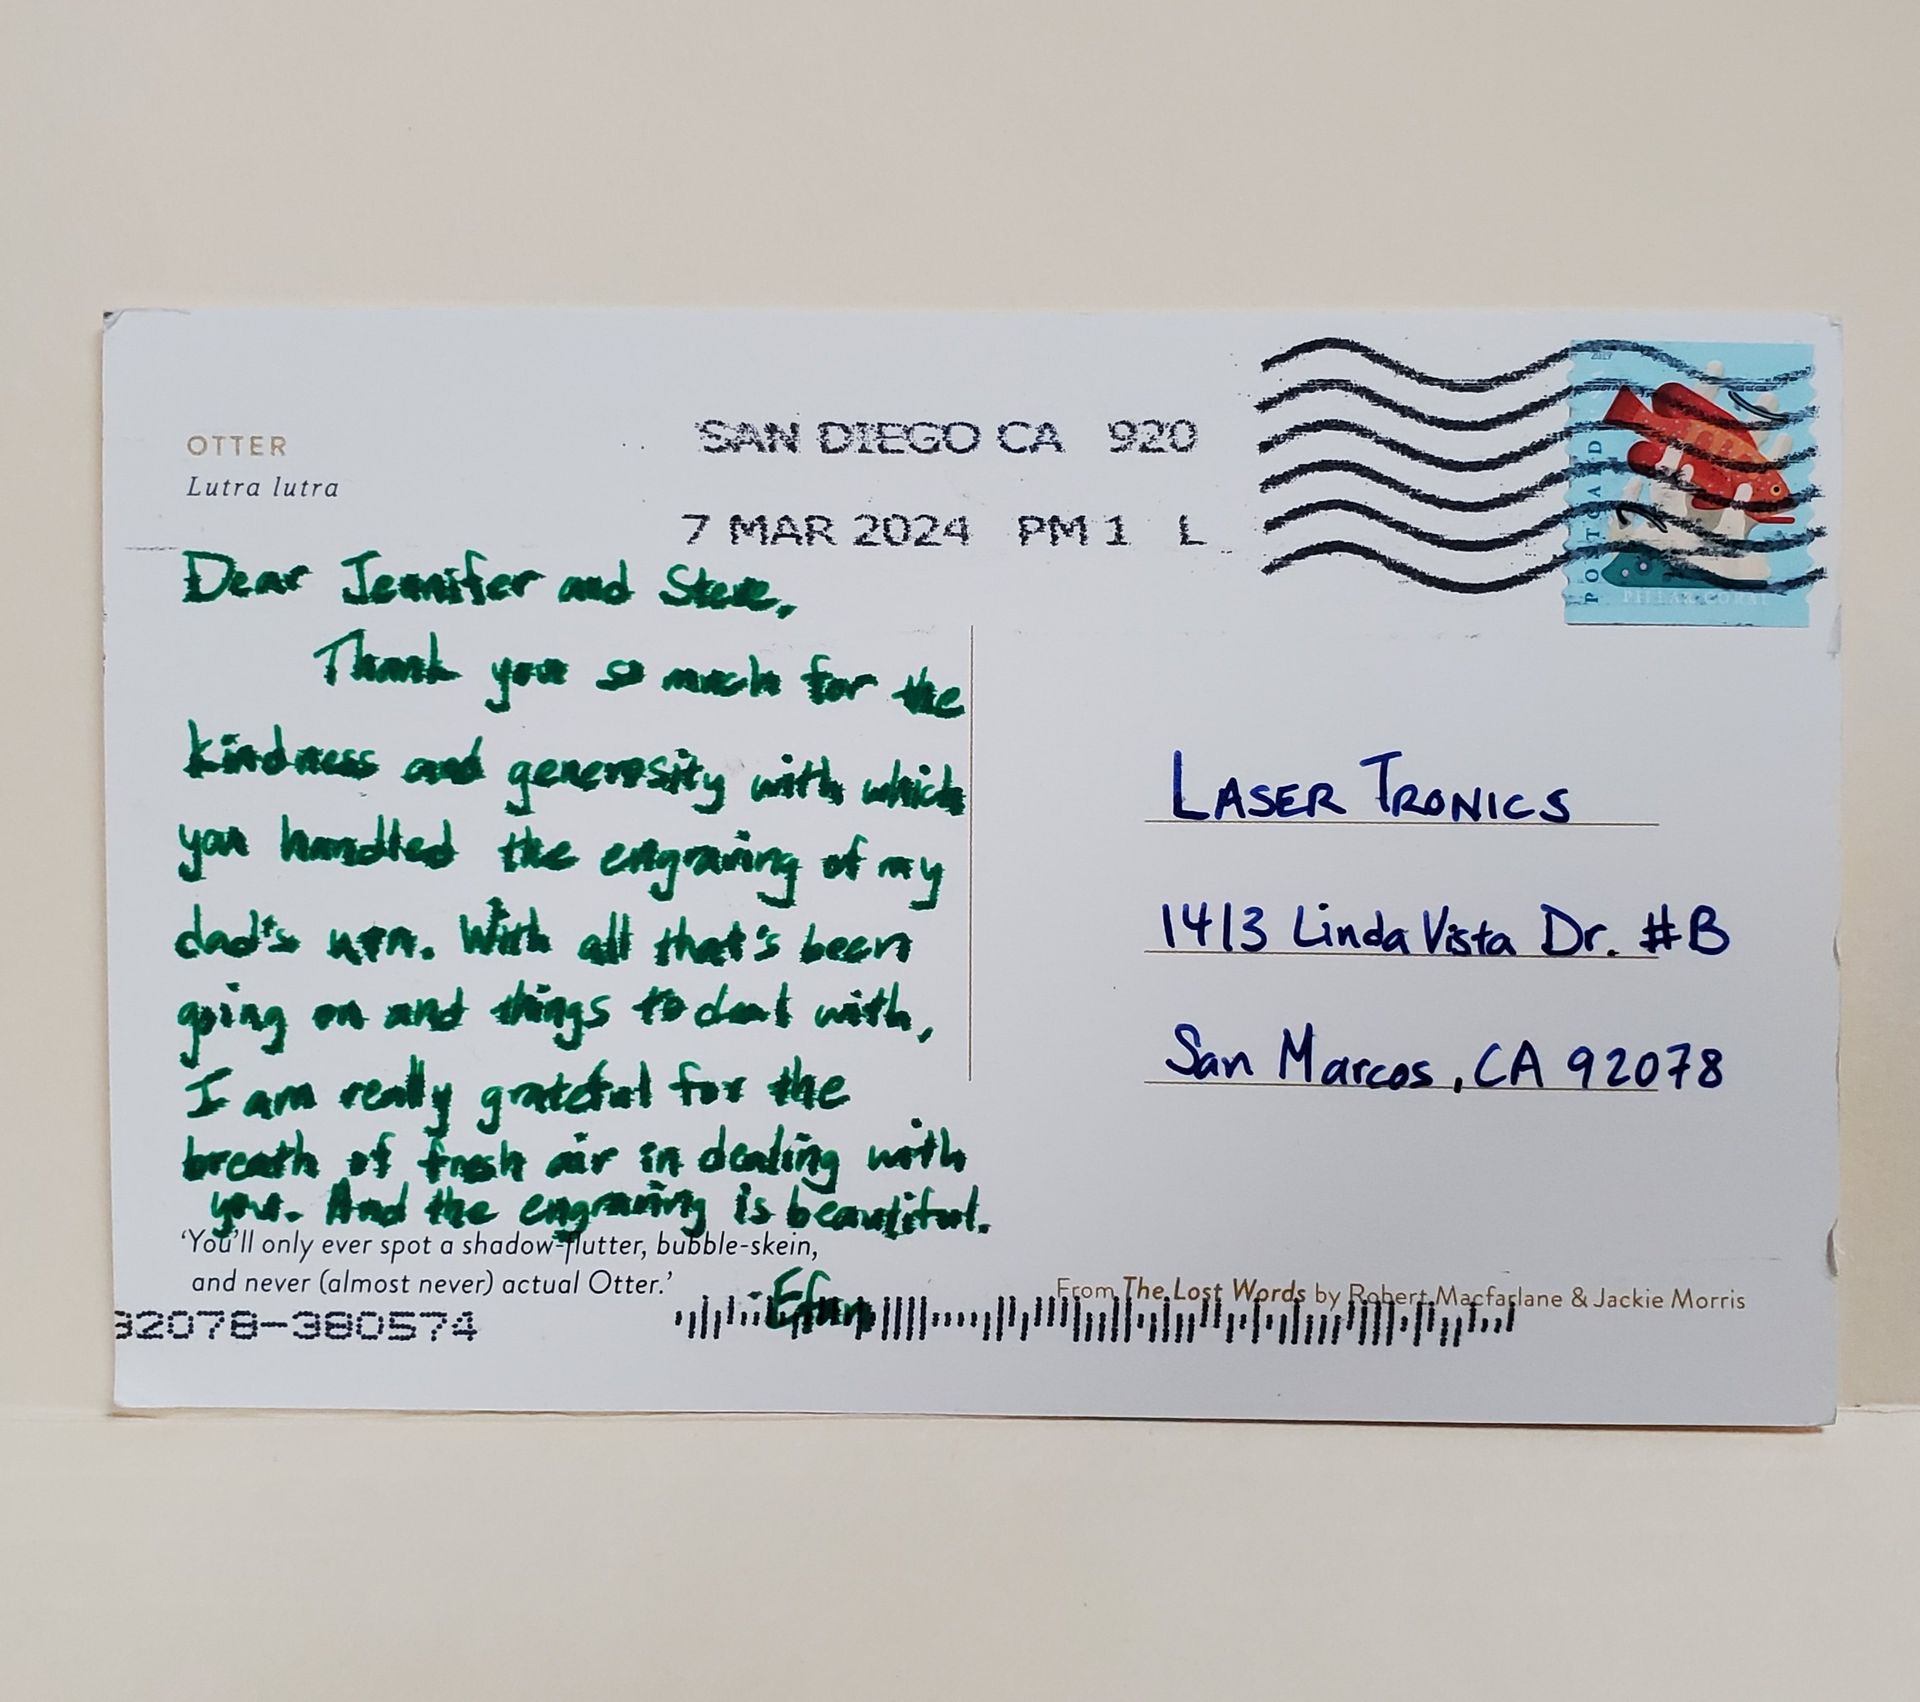 OTTER
Lutra lutra
SAN DIEGO CA 920
7 MAR 2024 PM 1 L
POSTCARD
PILLAR CORAL
2019
Dear Jennifer and Steve,
Thank you so much for the
kindness and generosity with which
you handled the engraving of my
dad's urn. With all that's been
going on and things to deal with,
I am really grateful for the
breath of fresh air in dealing with
you. And the engraving is beautiful.
'You'll only ever spot a shadow-flutter, bubble-skein,
and never (almost never) actual Otter.'
LASER TRONICS
1413 Linda Vista Dr. #B
San Marcos, CA 92078
From The Lost Words by Robert Macfarlane & Jackie Morris
92078-380574